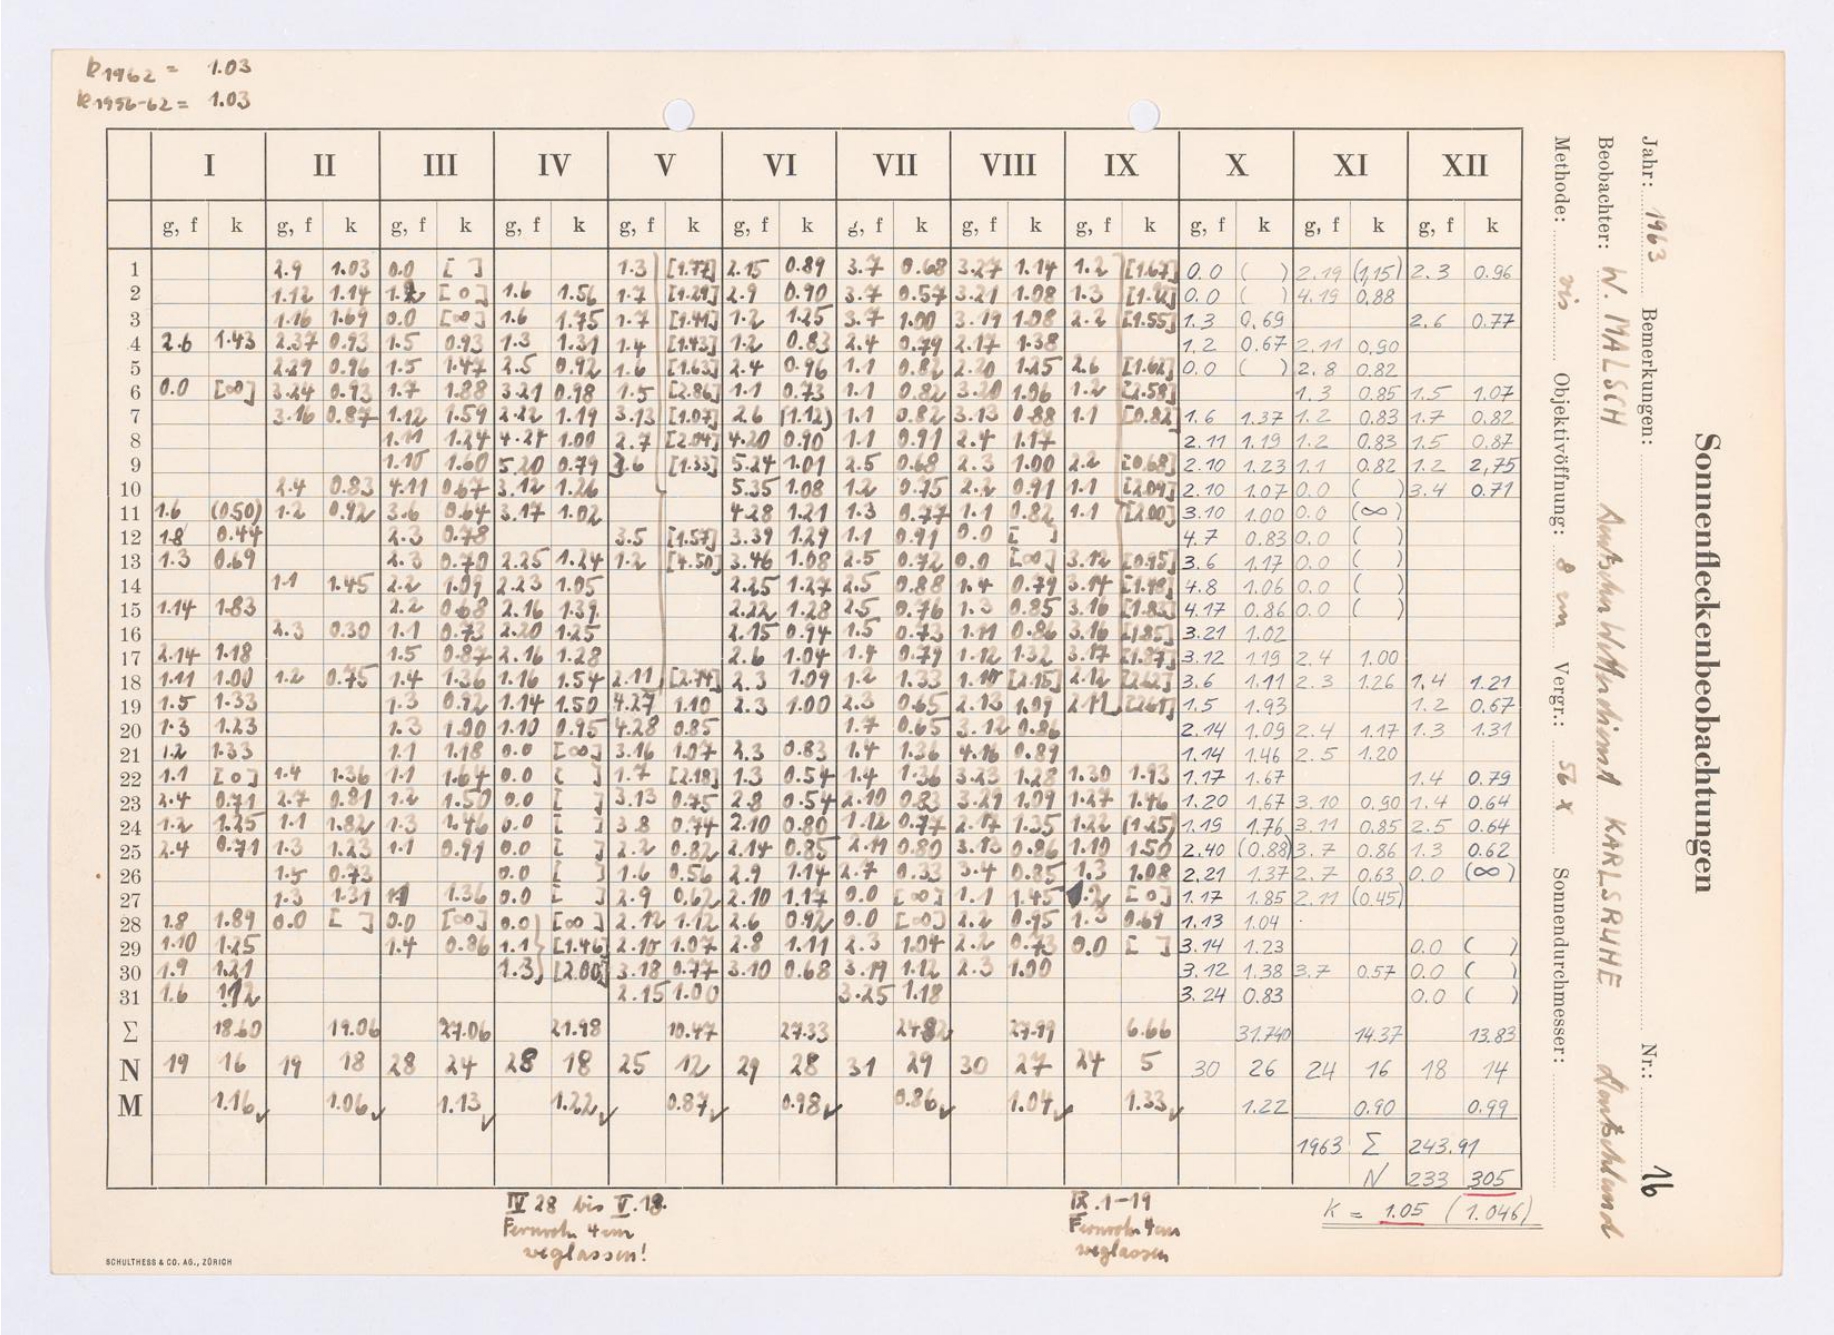 k1962 = 1.03
k1956-62 = 1.03
Sonnenfleckenbeobachtungen
Jahr: 1963 Bemerkungen: Nr.: 16
Beobachter: W. MALSCH KARLSRUHE Deutschland
Methode: vis Objektivöffnung: 8 cm Vergr.: 56 x Sonnendurchmesser:
I II III IV V VI VII VIII IX X XI XII
g, f k g, f k g, f k g, f k g, f k g, f k g, f k g, f k g, f k g, f k g, f k g, f k
1 2.9 1.03 0.0 [ ] 1.3 [1.77] 2.15 0.89 3.7 0.68 3.27 1.14 1.2 [1.67] 0.0 ( ) 2.19 (1,15) 2.3 0.96
2 1.12 1.14 [0] 1.6 1.56 1.7 [1.29] 2.9 0.90 3.7 0.57 3.21 1.08 1.3 0.0 ( ) 4.19 0,88
3 1.16 1.69 0.0 [∞] 1.6 1.75 1.7 [1.41] 1.2 1.25 3.7 1.00 3.19 1.08 2.2 [1.55] 1.3 0,69 2.6 0.77
4 2.6 1.43 2.37 0.93 1.5 0.93 1.3 1.31 1.4 [1.43] 1.2 0.83 2.4 0.79 2.17 1.38 1.2 0.67 2.11 0,90
5 2.29 0.96 1.5 1.47 2.5 0.92 1.6 [1.63] 2.4 0.96 1.1 0.82 2.20 1.25 2.6 [1.62] 0.0 ( ) 2.8 0.82
6 0.0 [∞] 3.24 0.93 1.7 1.88 3.21 0.98 1.5 [2.86] 1.1 0.73 1.1 0.82 3.20 1.06 1.2 [2.58] 1.3 0.85 1.5 1.07
7 3.16 0.87 1.12 1.59 2.22 1.19 3.13 [1.07] 2.6 (1.12) 1.1 0.82 3.13 0.88 1.1 [0.82] 1.6 1.37 1.2 0.83 1.7 0.82
8 1.11 1.24 4.27 1.00 2.7 [2.04] 4.20 0.90 1.1 0.91 2.4 1.17 2.11 1.19 1.2 0.83 1.5 0.87
9 1.10 1.60 5.20 0.79 3.6 [1.33] 5.24 1.01 2.5 0.68 2.3 1.00 2.2 [0.68] 2.10 1.23 1.1 0.82 1.2 2,75
10 2.4 0.83 4.11 0.67 3.12 1.26 5.35 1.08 1.2 0.75 2.2 0.91 1.1 [2.09] 2.10 1.07 0.0 ( ) 3.4 0.71
11 1.6 (0.50) 1.2 0.92 3.6 0.64 3.17 1.02 4.28 1.21 1.3 0.77 1.1 0.82 1.1 [2.00] 3.10 1.00 0.0 (∞)
12 1.8 0.44 2.3 0.78 3.5 [1.57] 3.39 1.29 1.1 0.91 0.0 [ ] 4.7 0.83 0.0 ( )
13 1.3 0.69 2.3 0.70 2.25 1.24 1.2 [4.50] 3.46 1.08 2.5 0.72 0.0 [∞] 3.12 [0.95] 3.6 1.17 0.0 ( )
14 1.1 1.45 2.2 1.09 2.23 1.05 2.25 1.27 2.5 0.88 1.4 0.79 3.14 [1.48] 4.8 1.06 0.0 ( )
15 1.14 1.83 2.2 0.68 2.16 1.39 2.22 1.28 2.5 0.76 1.3 0.85 3.16 [1.83] 4.17 0.86 0.0 ( )
16 2.3 0.30 1.1 0.73 2.20 1.25 2.15 0.94 1.5 0.73 1.11 0.86 3.16 [1.85] 3.21 1.02
17 2.14 1.18 1.5 0.87 2.16 1.28 2.6 1.04 1.4 0.79 1.12 1.32 3.17 [1.87] 3.12 1.19 2.4 1.00
18 1.11 1.00 1.2 0.75 1.4 1.36 1.16 1.54 2.11 [2.74] 2.3 1.09 1.2 1.33 1.10 [2.15] 2.12 [2.62] 3.6 1.11 2.3 1.26 1.4 1.21
19 1.5 1.33 1.3 0.92 1.14 1.50 4.27 1.10 2.3 1.00 2.3 0.65 2.13 1.09 2.11 [2.61] 1.5 1.93 1.2 0.67
20 1.3 1.23 1.3 1.00 1.10 0.95 4.28 0.85 1.7 0.65 3.12 0.86 2.14 1.09 2.4 1.17 1.3 1.31
21 1.2 1.33 1.1 1.18 0.0 [∞] 3.16 1.07 2.3 0.83 1.4 1.36 4.16 0.89 1.14 1.46 2.5 1.20
22 1.1 [0] 1.4 1.36 1.1 1.64 0.0 [ ] 1.7 [2.18] 1.3 0.54 1.4 1.36 3.23 1.28 1.30 1.93 1.17 1.67 1.4 0.79
23 2.4 0.71 2.7 0.81 1.2 1.50 0.0 [ ] 3.13 0.75 2.8 0.54 2.10 0.83 3.29 1.09 1.27 1.46 1.20 1,67 3.10 0,90 1.4 0.64
24 1.2 1.25 1.1 1.82 1.3 1.46 0.0 [ ] 3.8 0.74 2.10 0.80 1.12 0.77 2.17 1.35 1.22 (1.25) 1.19 1.76 3.11 0.85 2.5 0.64
25 2.4 0.71 1.3 1.23 1.1 0.91 0.0 [ ] 2.2 0.82 2.14 0.85 2.11 0.80 3.13 0.86 1.10 1.50 2.40 (0.88) 3.7 0.86 1.3 0.62
26 1.5 0.73 0.0 [ ] 1.6 0.56 2.9 1.14 2.7 0.33 3.4 0.85 1.3 1.08 2.21 1.37 2.7 0.63 0.0 (∞)
27 1.3 1.31 1.36 0.0 [ ] 2.9 0.62 2.10 1.17 0.0 [∞] 1.1 1.45 1.2 [0] 1.17 1.85 2.11 (0.45)
28 1.8 1.89 0.0 [ ] 0.0 [∞] 0.0 [∞] 2.12 1.12 2.6 0.92 0.0 [∞] 2.2 0.95 1.3 0.69 1.13 1.04
29 1.10 1.25 1.4 0.86 1.1 [1.46] 2.10 1.07 2.8 1.11 2.3 1.04 2.2 0.73 0.0 [ ] 3.14 1.23 0.0 ( )
30 1.9 1.21 1.3 [2.00] 3.18 0.77 3.10 0.68 3.19 1.12 2.3 1.00 3.12 1.38 3.7 0.57 0.0 ( )
31 1.6 1.12 2.15 1.00 3.25 1.18 3.24 0.83 0.0 ( )
Σ 18.60 19.06 27.06 21.98 10.47 27.33 24.82 27.99 6.66 31.740 14.37 13.83
N 19 16 19 18 28 24 28 18 25 12 29 28 31 29 30 27 24 5 30 26 24 16 18 14
M 1.16 1.06 1.13 1.22 0.87 0.98 0.86 1.04 1.33 1.22 0.90 0.99
1963 Σ 243.91
N 233 305
K = 1.05 (1.046)
IV 28 bis V.18.
Fernrohr 4cm
weglassen!
IX.1-19
Fernrohr 4cm
weglassen
SCHULTHESS & CO. AG., ZÜRICH